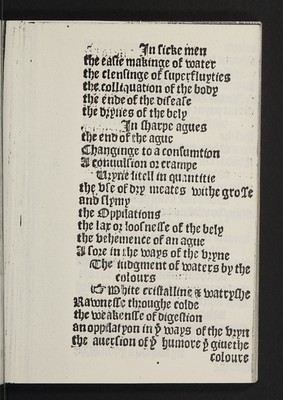 In sicke men
the easie makinge of water
the clensinge of superfluyties
the colliquation of the body
the ende of the disease
the dryues of the bely
In sharpe agues
the end of the ague
Changinge to a consumtion
A conuulsion or crampe
Uryne litell in quantitie
the vse of dry meates withe grosse
and slymy
the Oppilations
the lax or loosnesse of the bely
the vehemence of an ague
A sore in the ways of the vryne
The iudgment of waters by the
colours
White cristalline & watryshe
Rawnesse throughe colde
the weakensse of digestion
an oppilatyon in yͤ ways of the vryn
the auersion of yͤ humore yͭ giuethe
coloure